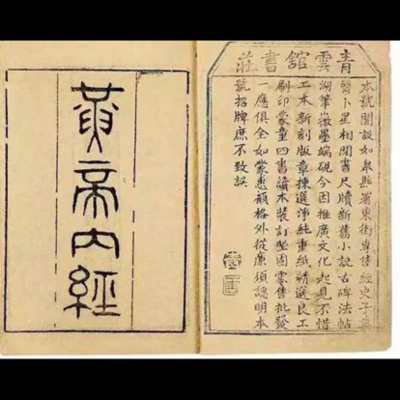 青雲舘書莊
本號開設如皋縣署東街專售經史子集
醫卜星相閒書尺牘新舊小說古碑法帖
湖筆徽墨端硯今因推廣文化起見不惜
工本新刻版章揀選淨純重紙精選良工
刷印蒙童四書讀本裝訂堅固零售批發
一應俱全如蒙惠顧格外從廉須認明本
號招牌庶不致誤
黃帝內經